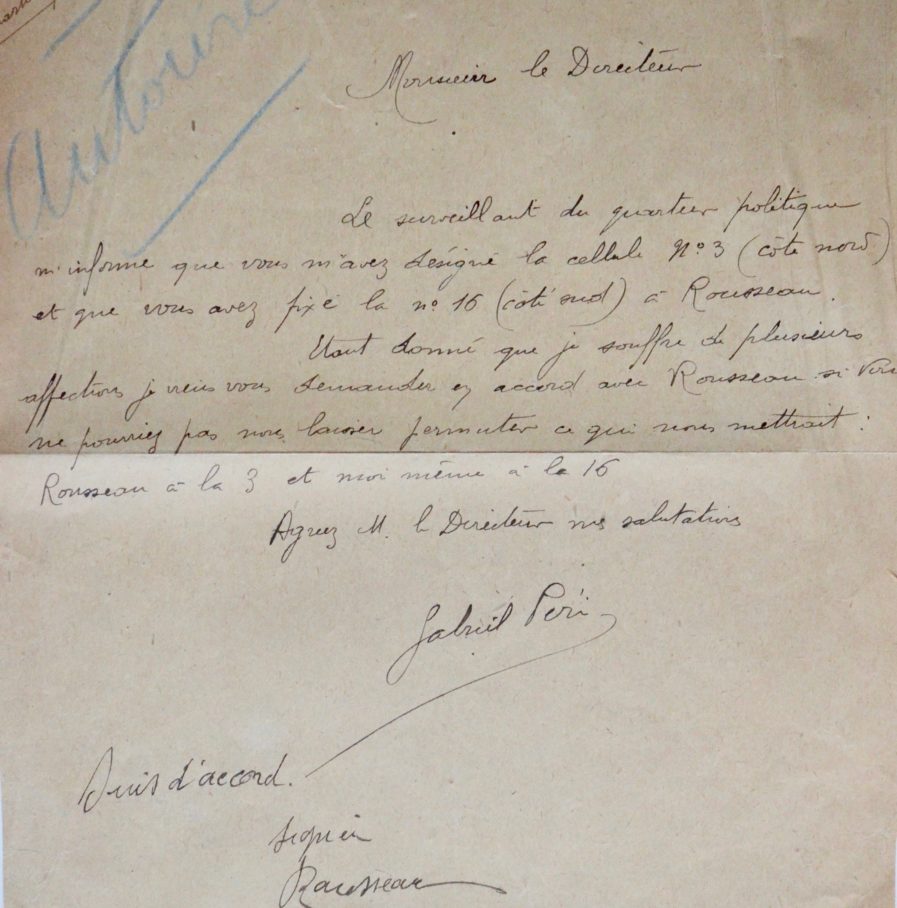 Autorisé
Monsieur le Directeur
Le surveillant du quartier politique
m'informe que vous m'avez désigné la cellule N° 3 (côté nord)
et que vous avez fixé la n° 16 (côté sud) à Rousseau.
Etant donné que je souffre de plusieurs
affections je viens vous demander en accord avec Rousseau si vous
ne pourriez pas nous laisser permuter ce qui nous mettrait :
Rousseau à la 3 et moi même à la 16
Agréez M. le Directeur mes salutations
Gabriel Péri
Suis d'accord.
Rousseau